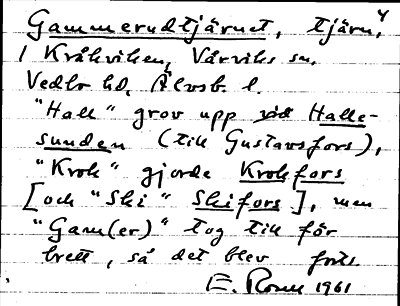 4
Gammerudtjärnet, tjärn,
/ Kråkviken, Vårviks sn,
Vedbo hd, Älvsb. l.
"Hall" grov upp vid Halle-
sunden (till Gustavsfors),
"Krok" gjorde Krokfors
[och "Ski" Skifors], men
"Gam(er)" tog till för
brett, så det blev forts.
E. Room 1961